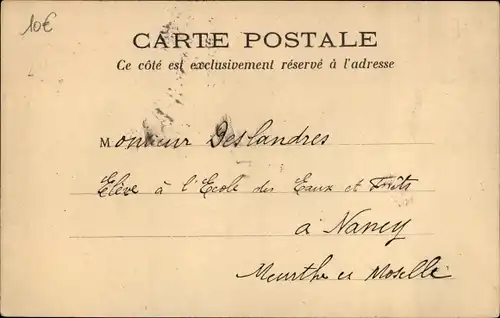 10€
CARTE POSTALE
Ce côté est exclusivement réservé à l'adresse
Monsieur Deslandres
Elève à l'Ecole des Eaux et Forêts
à Nancy
Meurthe et Moselle